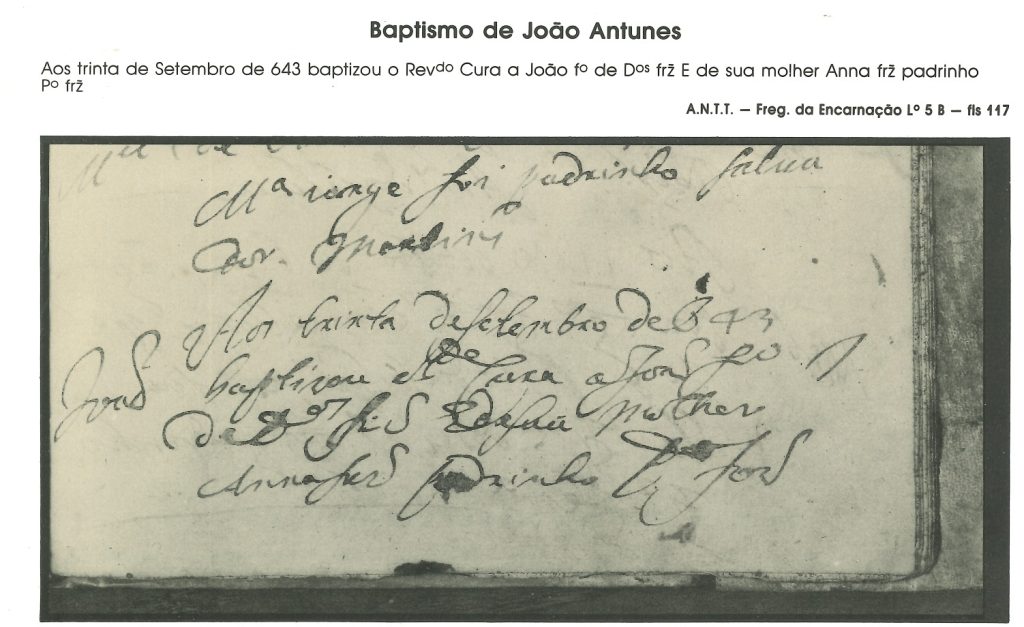 Baptismo de João Antunes
Aos trinta de Setembro de 643 baptizou o Revdo Cura a João fo de Dos frz̃ E de sua molher Anna frz̃ padrinho
Po frz̃
A.N.T.T. — Freg. da Encarnação Lo 5 B — fls 117
Ma iorge foi padrinho salua
dor. Martins
Aos trinta de setembro de 643
João baptizou o Rdo Cura a João fo
de Dos frz̃ E de sua molher
Anna frz̃ padrinho Po frz̃